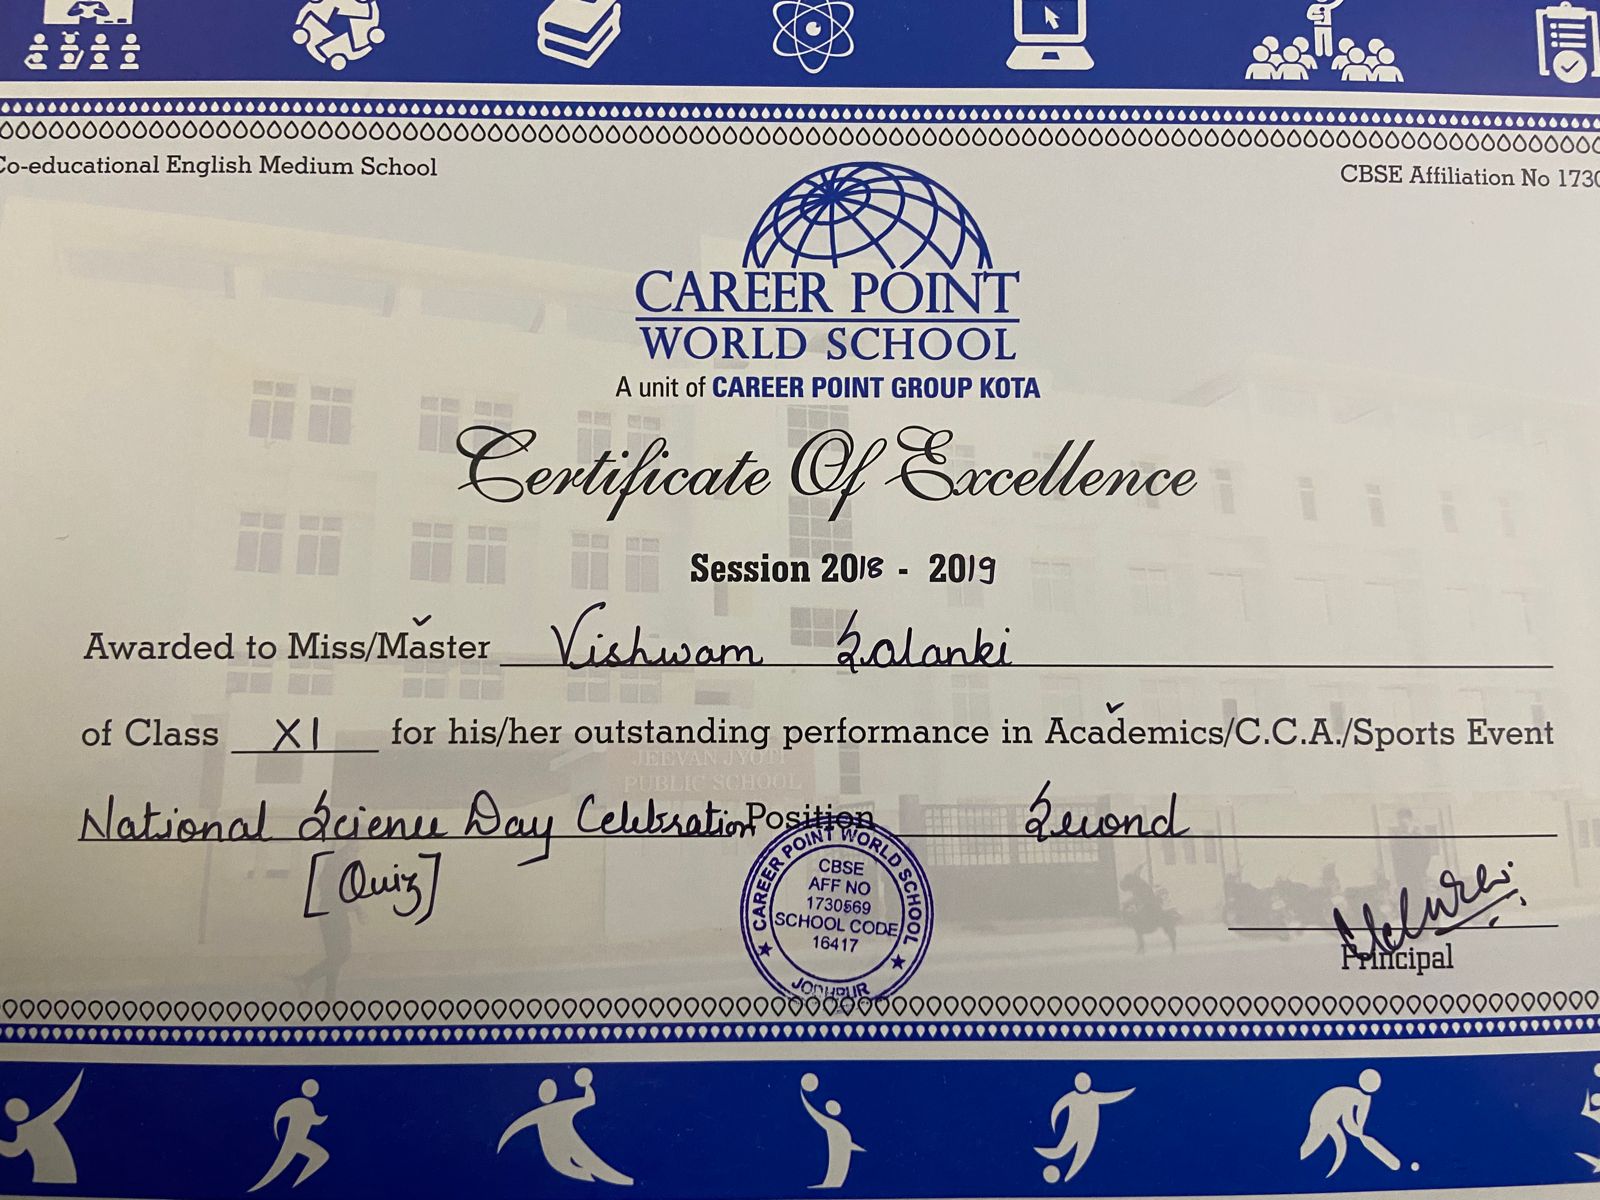 Co-educational English Medium School
CBSE Affiliation No 1730
CAREER POINT
WORLD SCHOOL
A unit of CAREER POINT GROUP KOTA
Certificate Of Excellence
Session 2018 - 2019
Awarded to Miss/Master Vishwam Solanki
of Class XI for his/her outstanding performance in Academics/C.C.A./Sports Event
JEEVAN JYOTI
PUBLIC SCHOOL
National Science Day Celebration Position Second
[Quiz]
CAREER POINT WORLD SCHOOL
CBSE
AFF NO
1730569
SCHOOL CODE
16417
JODHPUR
Principal